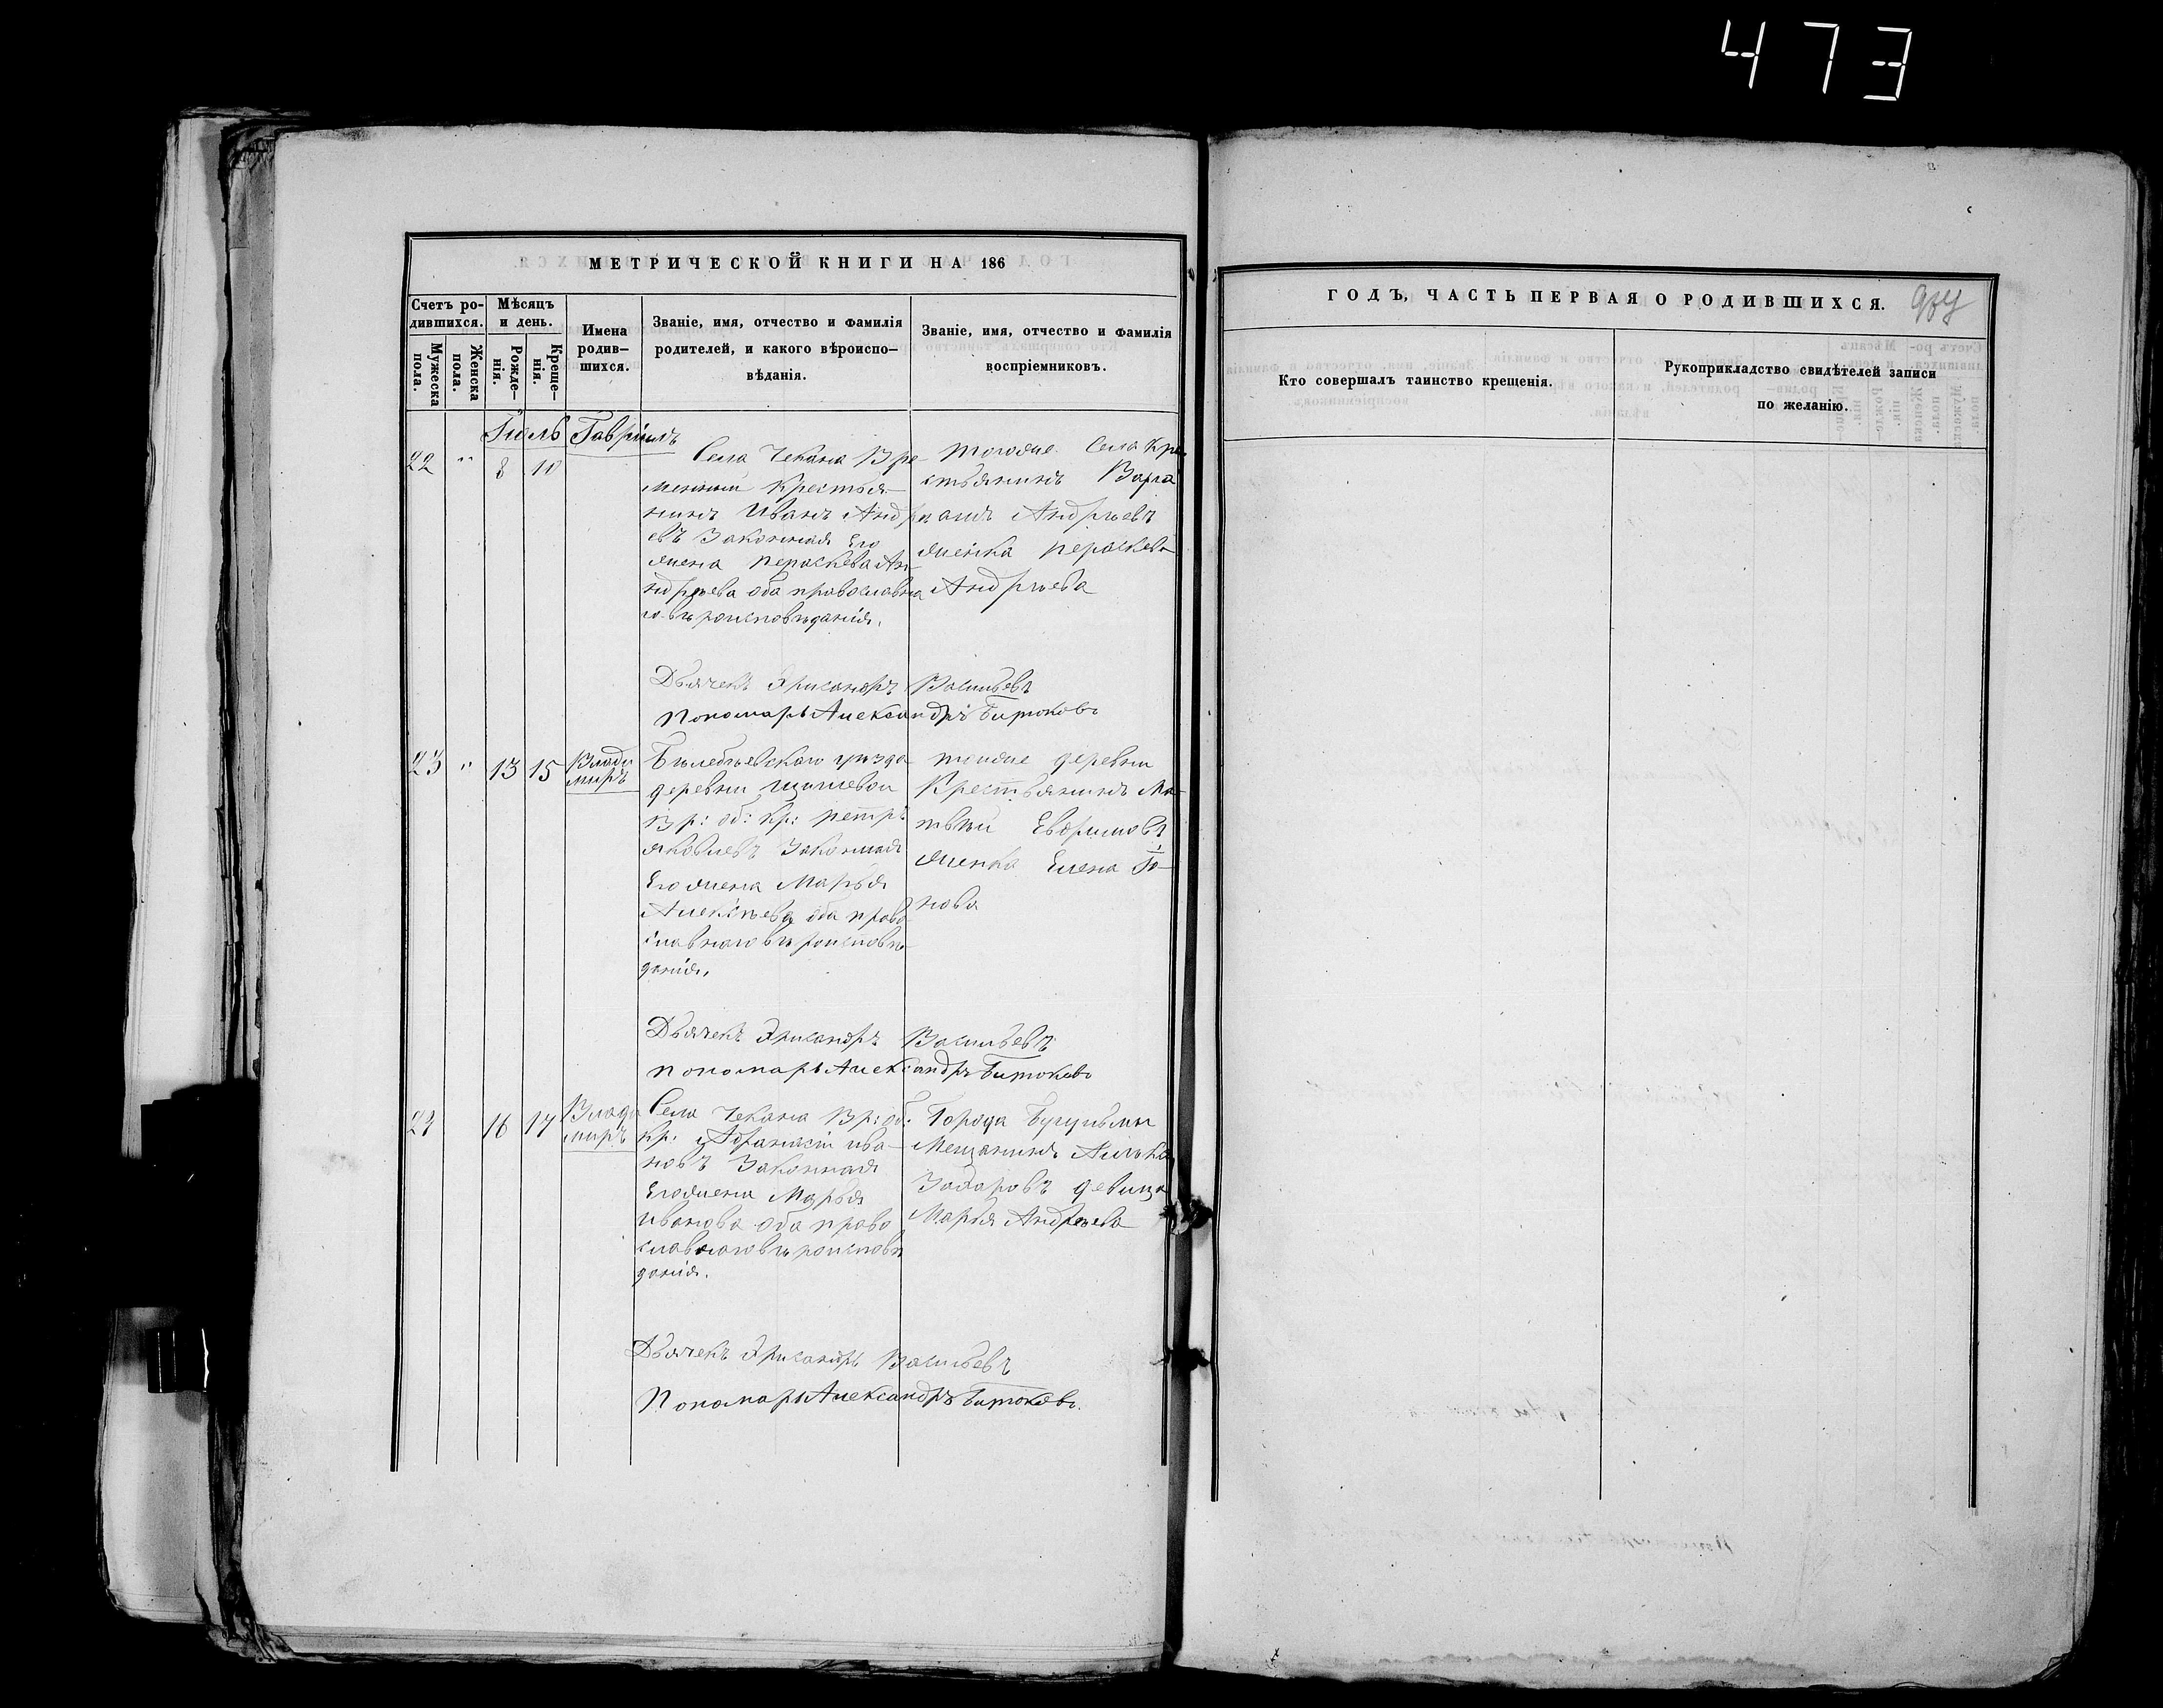 473
МЕТРИЧЕСКОЙ КНИГИ НА 186
Счетъ ро-
дившихся.
Мужеска
пола.
Женска
пола.
Мѣсяцъ
и день.
Рожде-
нія.
Креще-
нія.
Имена
родив-
шихся.
Званіе, имя, отчество и фамилія
родителей, и какого вѣроиспо-
вѣданія.
Званіе, имя, отчество и фамилія
воспріемниковъ.
Іюль
22 " 8 10
Гавріилъ
Села Чекана Вре
менный Крестья-
нинъ Иванъ Андре
евъ Законная Его
жена Пераскева Ан-
ндреева оба православна
го вѣроисповѣданія.
Тогоже Села Кре
стьянинъ
Андреевъ
женка Пераскева
Андреева
Дьячекъ Васильевъ
Пономарь Александръ Битюковъ
23 " 13 15
Влади
миръ
Бѣлебѣевскаго уѣзда
деревни
Вр: об: Кр: Петръ
Яковлевъ Законная
Его жена Марья
Алексѣева оба право
славнаго вѣроисповѣ-
данія.
тойже деревни
Крестьянинъ Ма-
твѣй Евфимовъ
женка Елена
нова
Дьячекъ Васильевъ
Пономарь Александръ Битюковъ
24 16 17
Влади
миръ
Села Чекана Вр: об:
Кр: Афанасій Ива-
новъ Законная
Его жена Марья
Иванова оба право
славнаго вѣроисповѣ
данія.
Города Бугульмы
Мещанинъ
Захаровъ девица
Марья Андреева
Дьячекъ Васильевъ
Пономарь Александръ Битюковъ.
ГОДЪ, ЧАСТЬ ПЕРВАЯ О РОДИВШИХСЯ.
Кто совершалъ таинство крещенія.
Рукоприкладство свидѣтелей записи
по желанію.